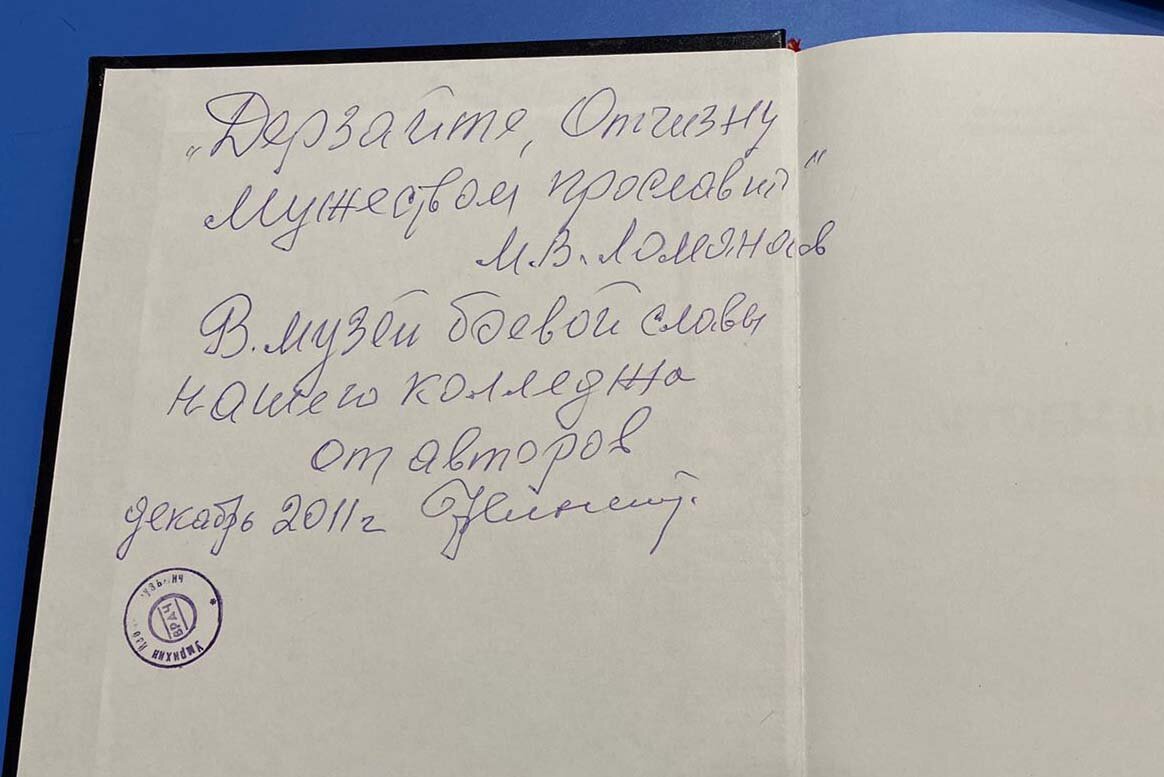 „Дерзайте, Отчизну
мужеством прославит"
М.В. Ломоносов
В музей боевой славы
нашего колледжа
от авторов
декабрь 2011 г
Умрихин
ВРАЧ